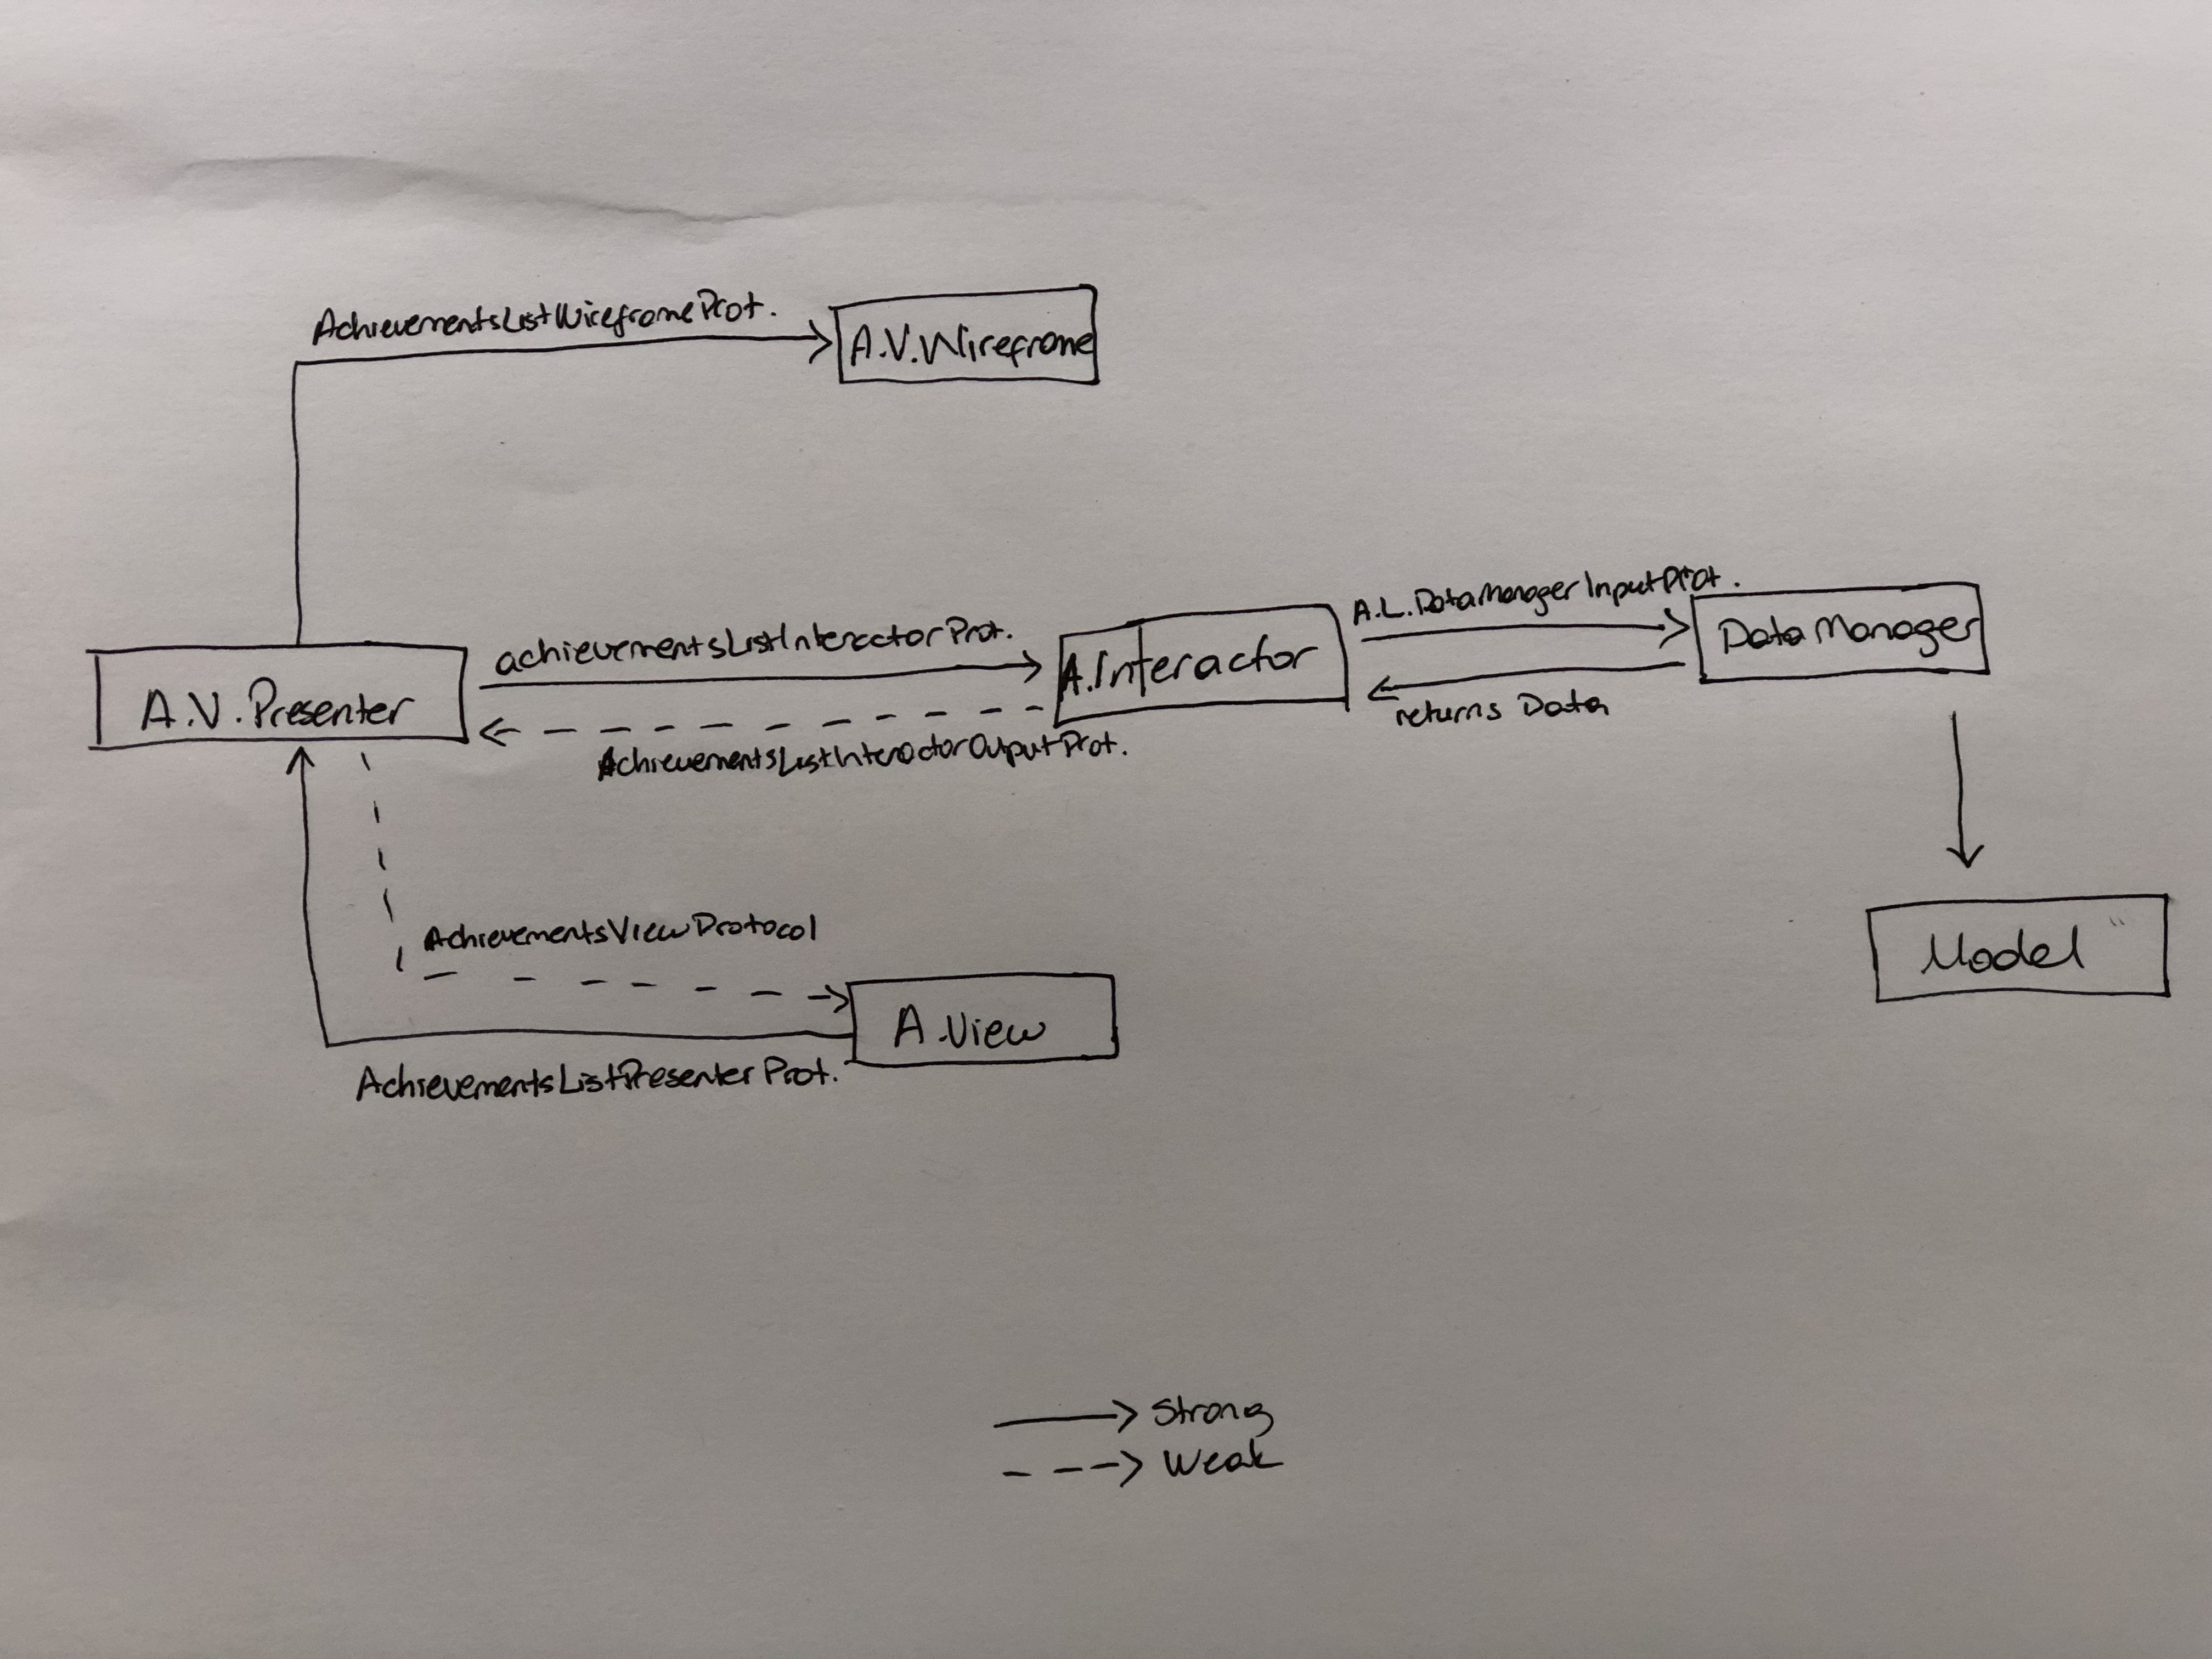 AchievementsListWireframeProt.
A.V.Wireframe
A.V.Presenter
achievementsListInteractorProt.
AchievementsListInteractorOutputProt.
A.Interactor
A.L.DataManagerInputProt.
returns Data
DataManager
AchievementsViewProtocol
AchievementsListPresenterProt.
A.View
Model
Strong
Weak